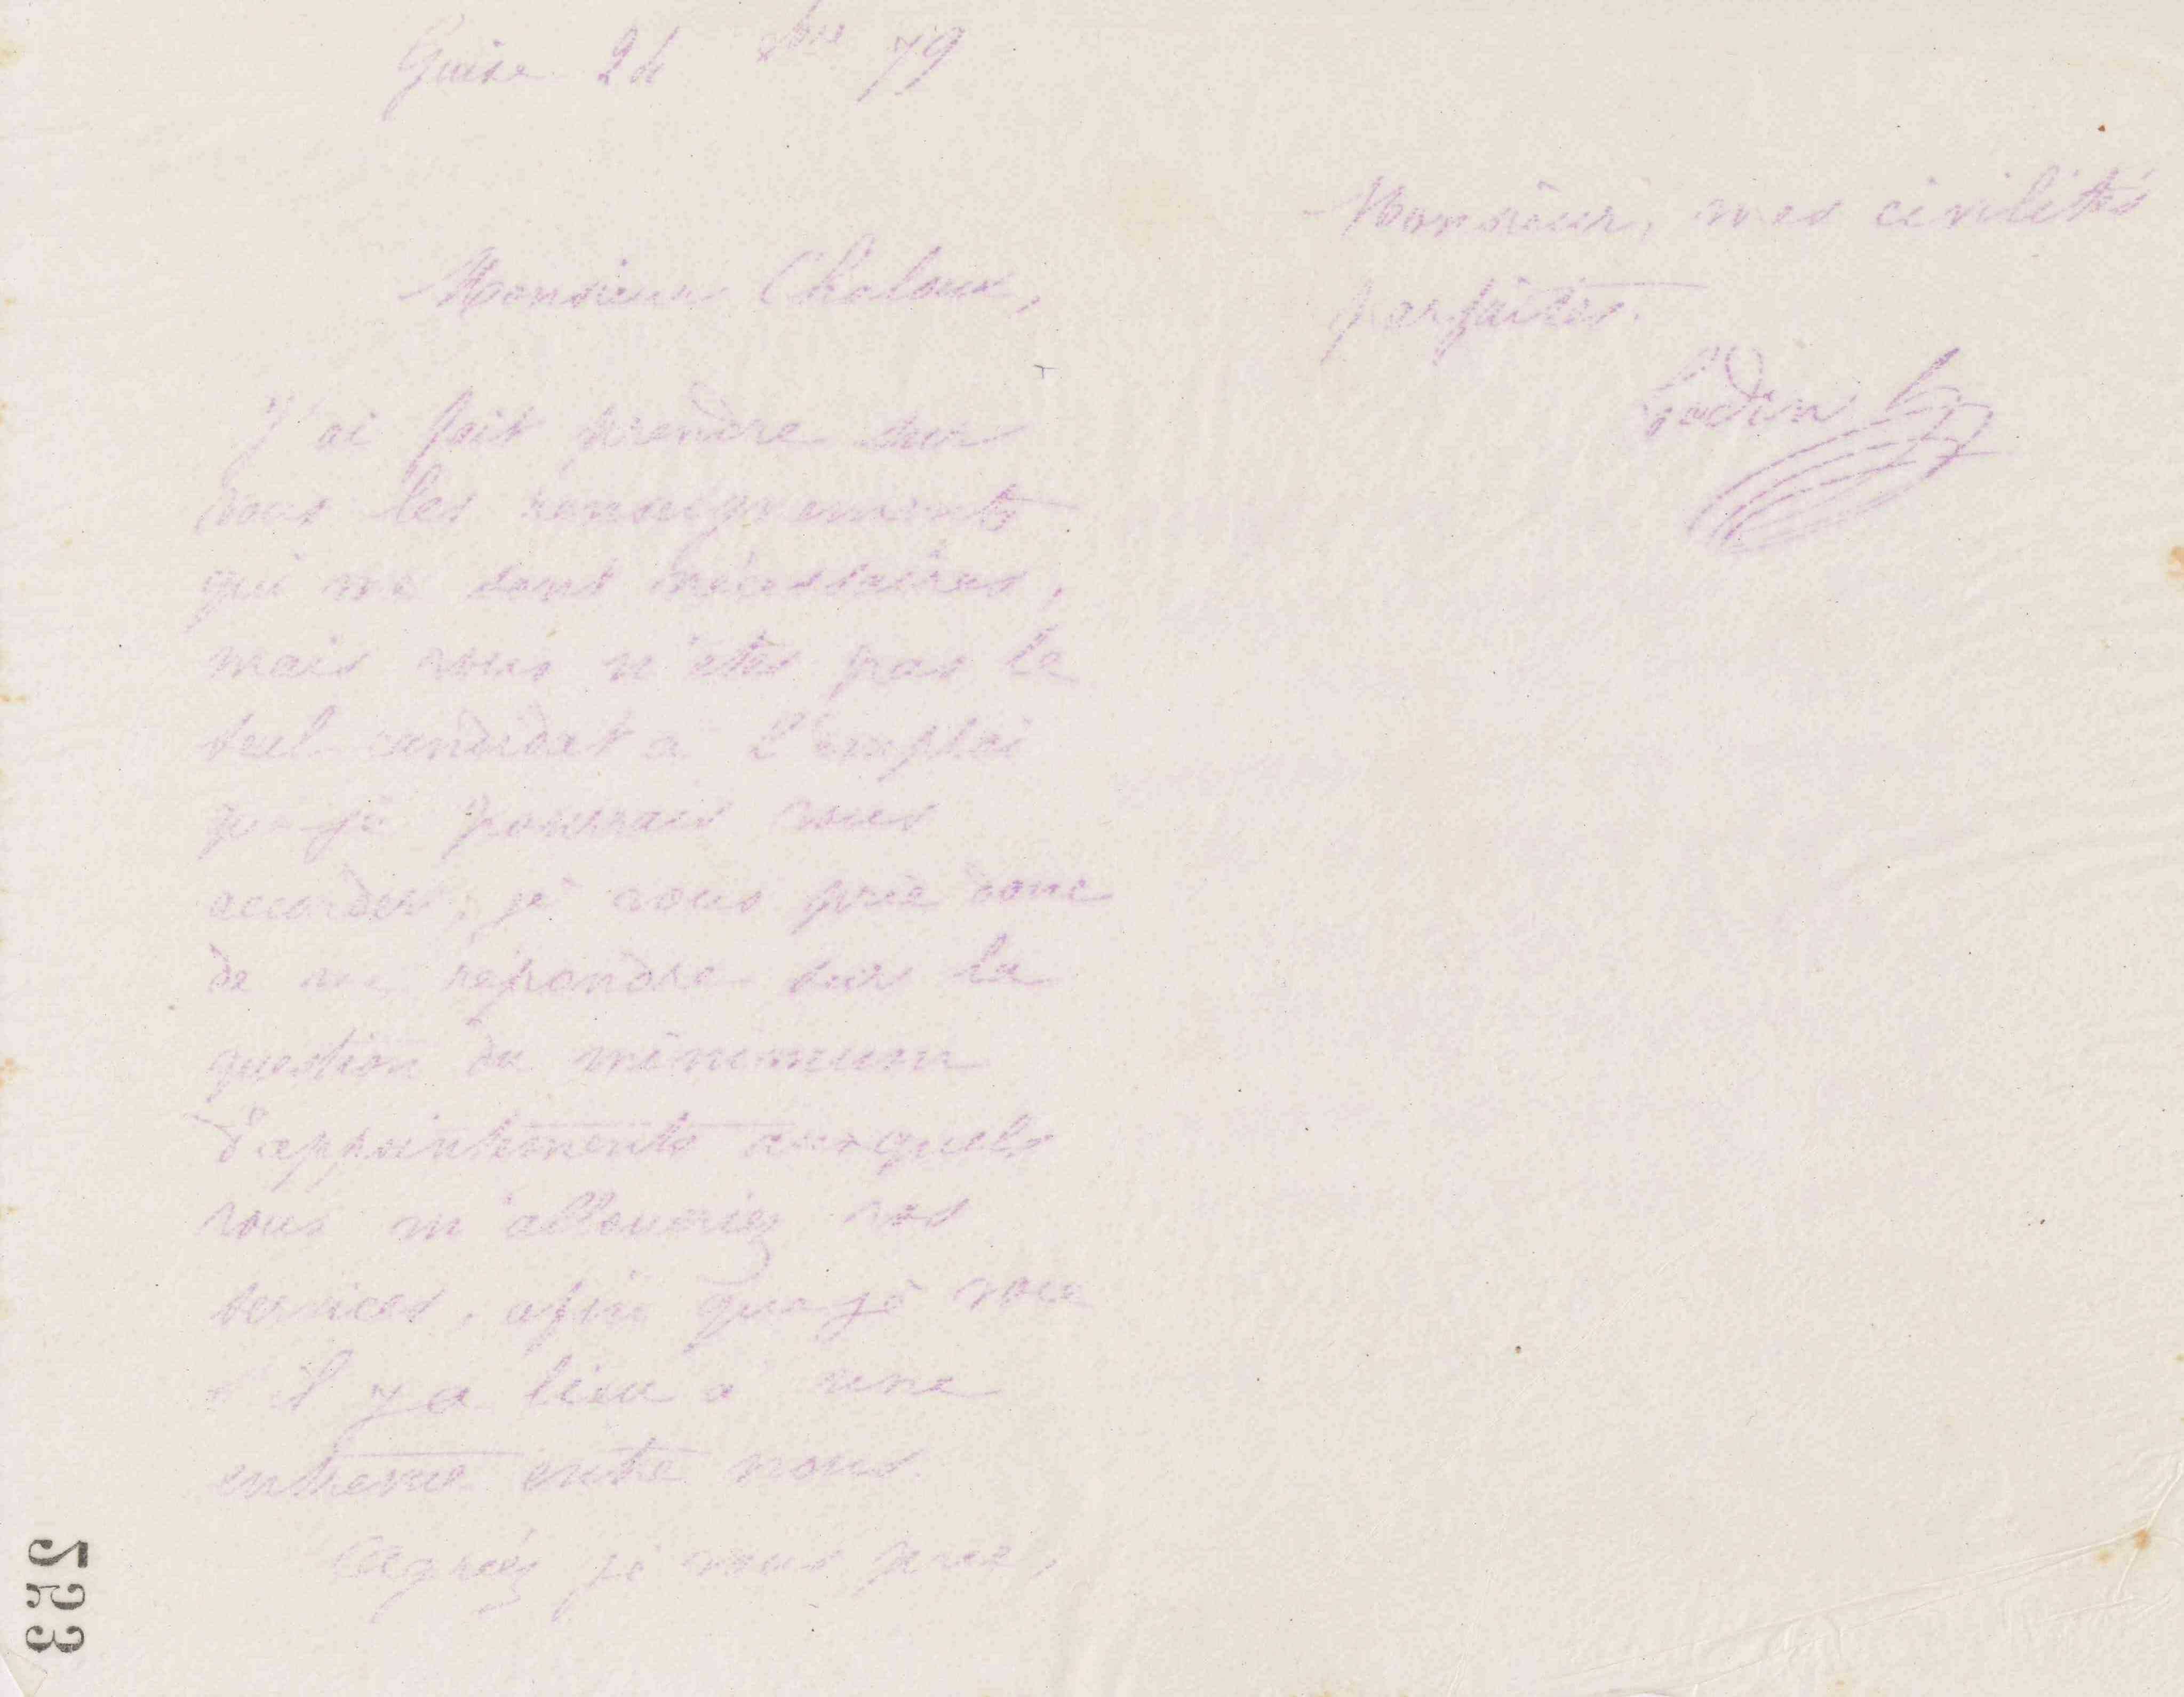 Guise 24 xbre 79
Monsieur Chaloux,
J'ai fait prendre sur
vous les renseignements
qui me sont nécessaires,
mais vous n'êtes pas le
seul candidat à l'emploi
que je pourrais vous
accorder; je vous prie donc
de me répondre sur la
question du minimum
d'appointements auxquels
vous m'alloueriez vos
services, afin que je voie
s'il y a lieu à une
entrevue entre nous.
Agréez je vous prie,
Monsieur, mes civilités
parfaites.
Godin
523